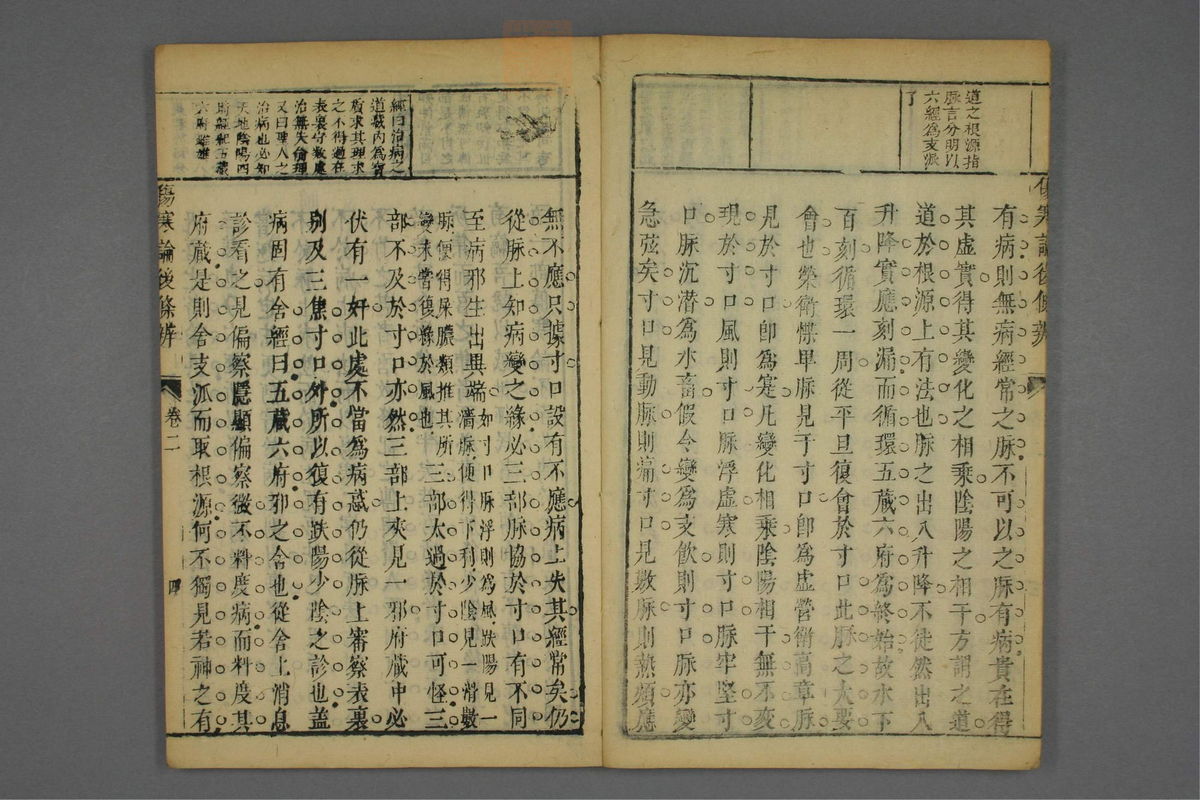 道之根源指
脉言分明以
六經爲支派
了
傷寒論後條辨
有病則無病經常之脉不可以之脉有病貴在得
其虛實得其變化之相乘陰陽之相干方謂之道
道於根源上有法也脉之出入升降不徒然出入
升降實應刻漏而循環五藏六府爲終始故水下
百刻循環一周從平旦復會於寸口此脉之大要
會也榮衛慄卑脉見于寸口卽爲虛營衛高章脉
見於寸口卽爲寔凡變化相乘陰陽相干無不変
現於寸口風則寸口脉浮虛寒則寸口脉牢堅寸
口脉沉潜爲水畜假令變爲支飲則寸口脉亦變
急弦矣寸口見動脉則痛寸口見数脉則熱頻應
經曰治病之
道氣內爲寳
循求其理求
之不得過在
表裏守数處
治無失俞理
又曰聖人之
治病也必知
天地陰陽四
時經紀五藏
六府雌雄
無不應只據寸口設有不應病上失其經常矣仍
從脉上知病變之緣必三部脉協於寸口有不同
至病邪生出異端如寸口脉浮則爲風趺陽見一
濇脉便得下利少陰見一滑數
脉便得屎膿類推其所
變來嘗復緣於風也三部太過於寸口可怪三
部不及於寸口亦然三部上夾見一邪府藏中必
伏有一奸此處不當爲病惑仍從脉上審察表裏
別及三焦寸口外所以復有趺陽少陰之診也蓋
病固有舍經曰五藏六府邪之舍也從舍上消息
診看之見偏察隱顯偏察微不料度病而料度其
府藏是則舍支派而取根源何不獨見若神之有
傷寒論後條辨
卷二
四